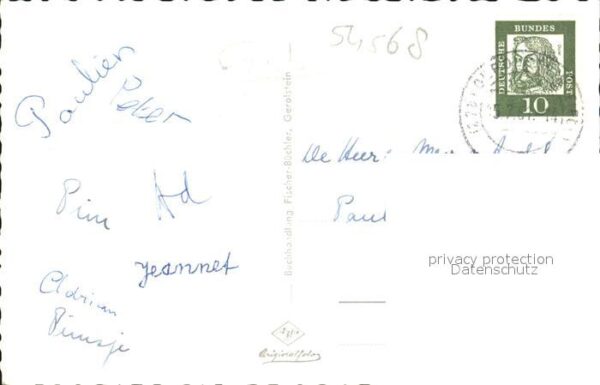 52,568
DEUTSCHE
BUNDES
POST
10
Paulien
Peter
Pim
Ad
Jeannet
Adrian
Pimsje
Buchhandlung Fischer-Büchler, Gerolstein
De Heer:
Paul
privacy protection
Datenschutz
Originalfoto